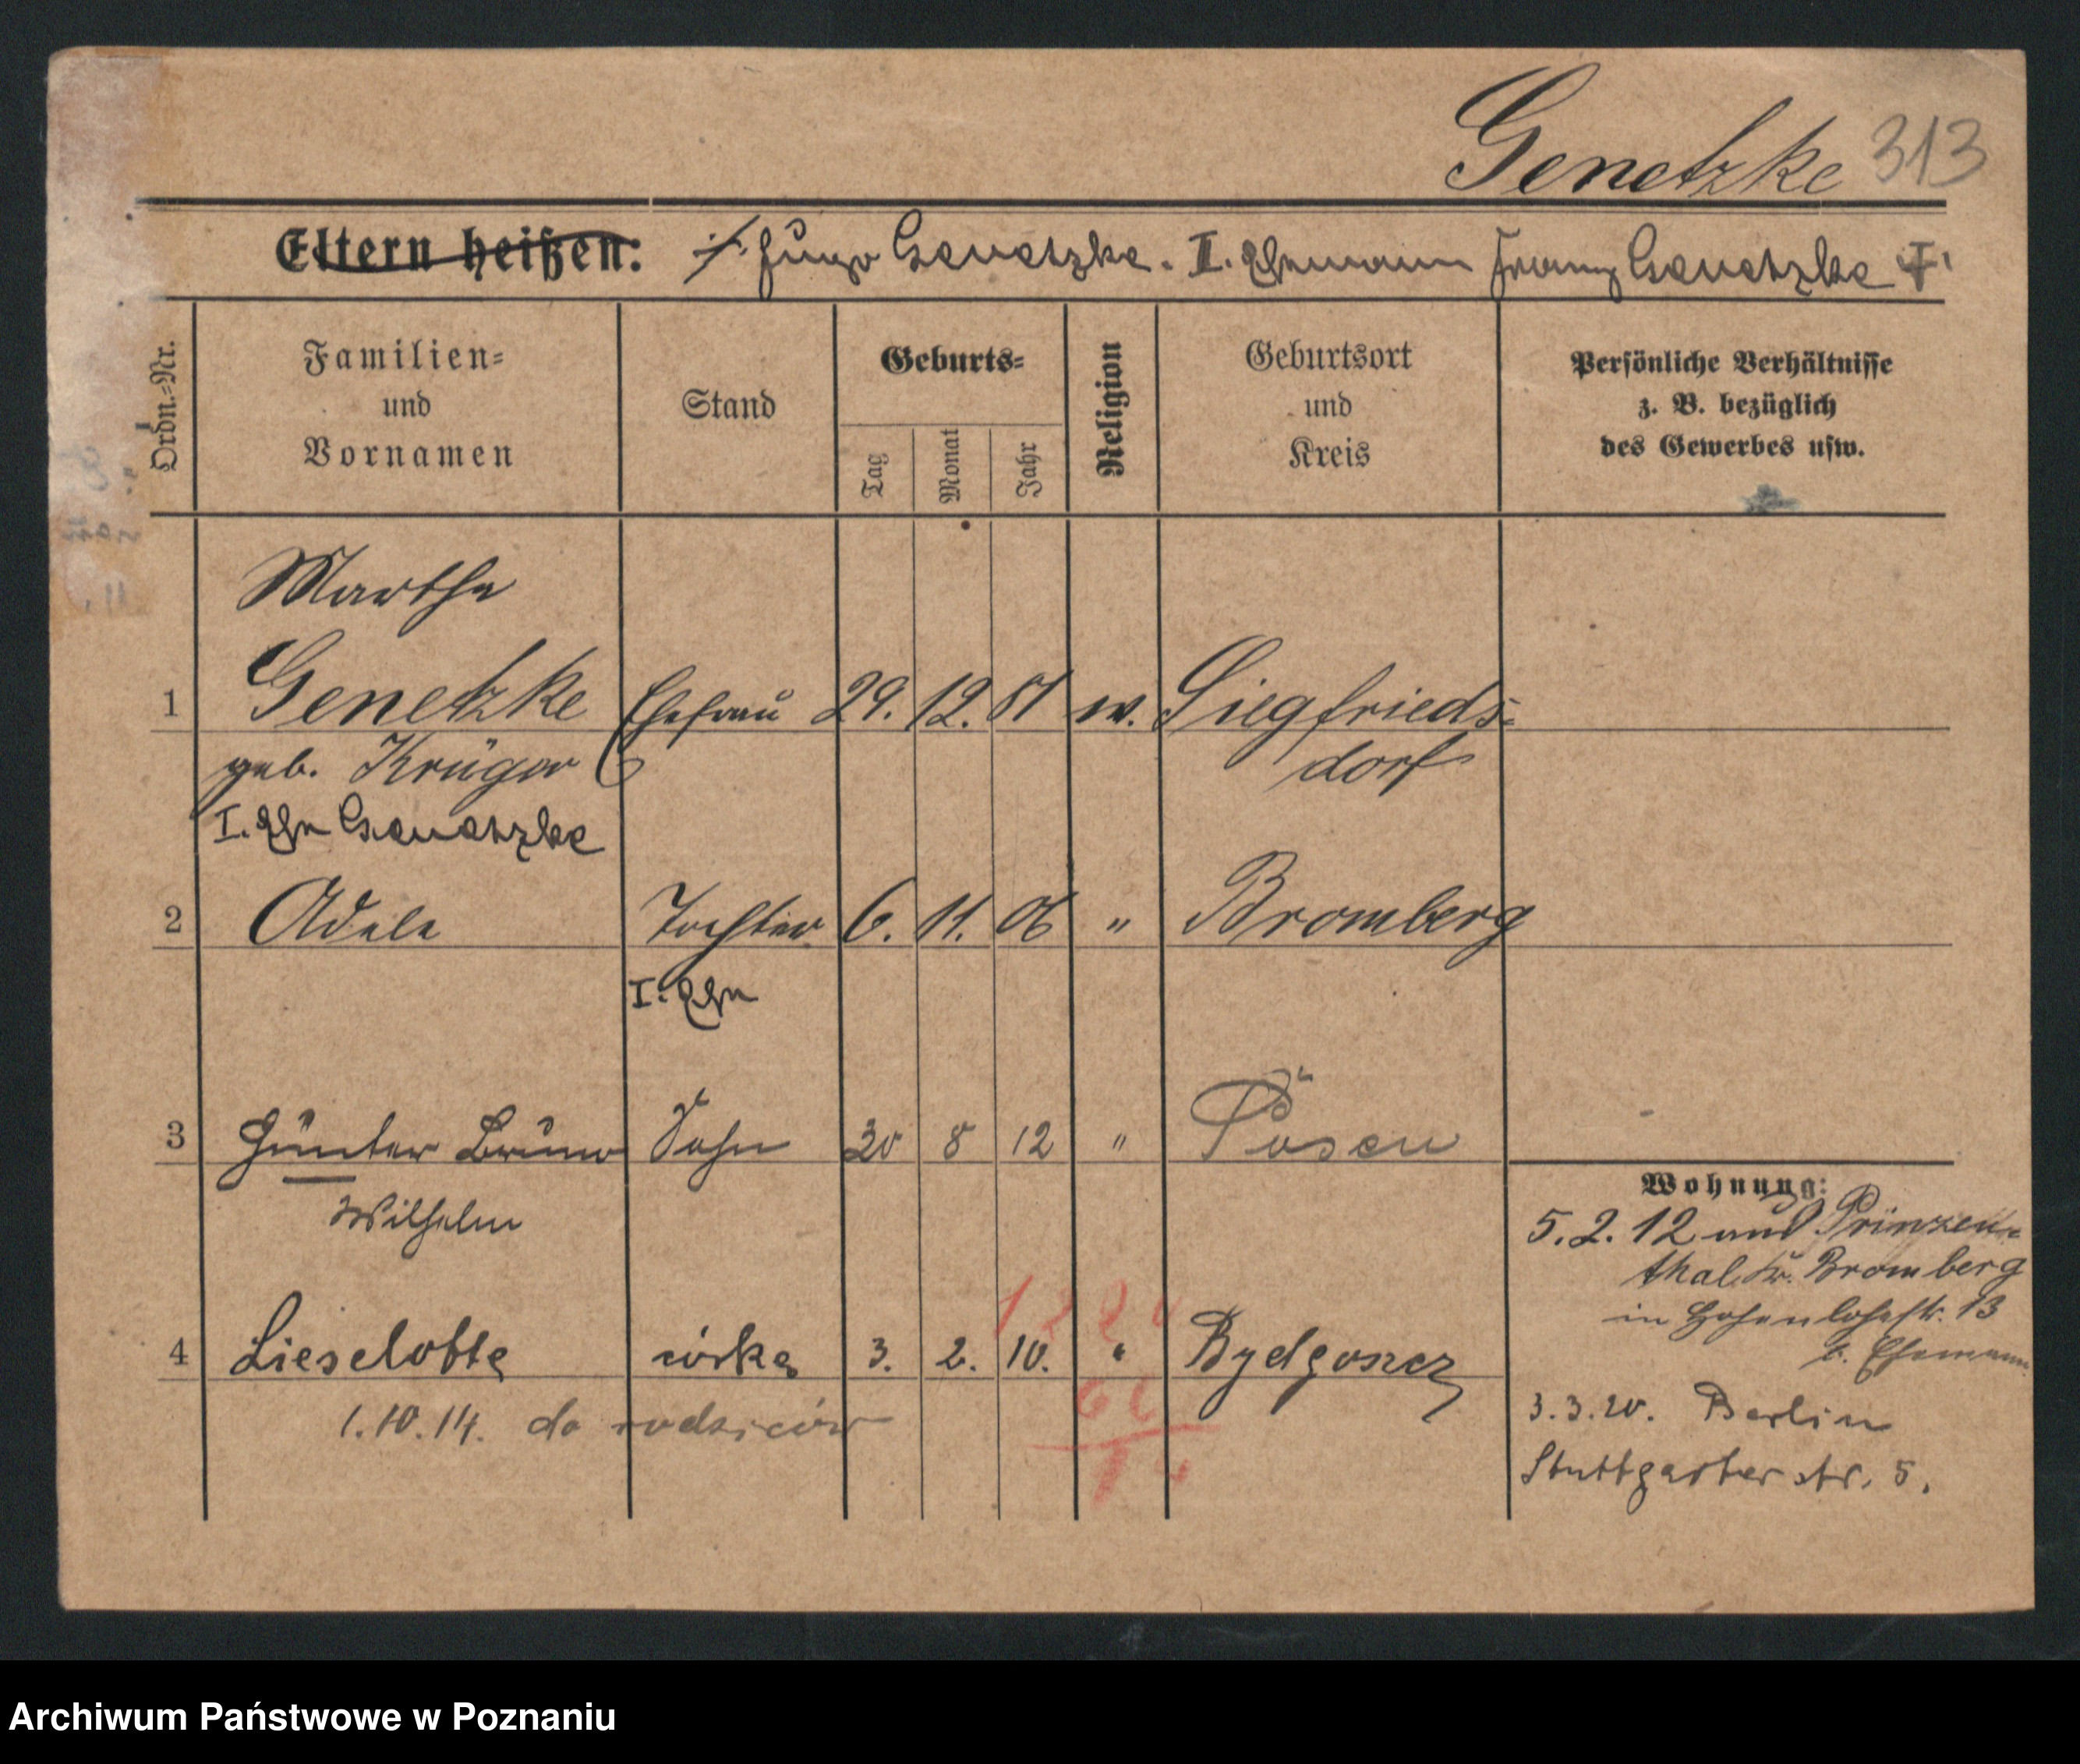 Genetzke 313
Eltern heißen: Hugo Genetzke. II. Ehemann Franz Genetzke †
Ordn.-Nr.
Familien-
und
Vornamen
Stand
Geburts-
Tag
Monat
Jahr
Religion
Geburtsort
und
Kreis
Persönliche Verhältnisse
z. B. bezüglich
des Gewerbes usw.
Marthe
1 Genetzke Ehefrau 29. 12. 81 ev. Siegfrieds-
geb. Krüger dorf
I. Ehe Genetzke
2 Adele Tochter 6. 11. 06 " Bromberg
I. Ehe
3 Günter Bruno Sohn 20 8 12 " Posen
Wilhelm
Wohnung:
5.2.12 aus Prinzen-
thal, Kr. Bromberg
in Hohenlohestr. 13
z. Ehemann
4 Lieselotte córka 3. 2. 10. " Bydgoszcz
1.10.14. do rodziców
3.3.20. Berlin
Stuttgarter str. 5.
Archiwum Państwowe w Poznaniu